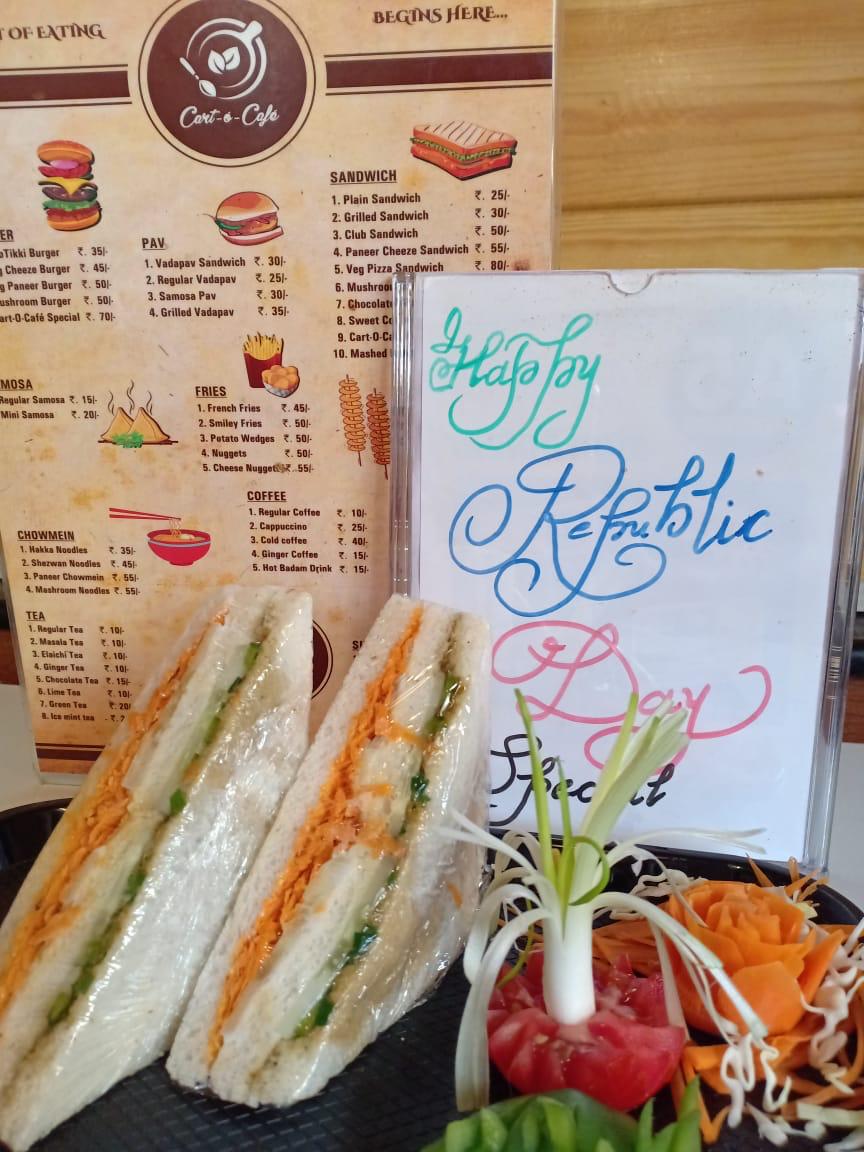 T OF EATING
BEGINS HERE...
Cart-o-Café
SANDWICH
1. Plain Sandwich ₹. 25/-
2. Grilled Sandwich ₹. 30/-
3. Club Sandwich ₹. 50/-
4. Paneer Cheeze Sandwich ₹. 55/-
5. Veg Pizza Sandwich ₹. 80/-
6. Mushroo
7. Chocolat
8. Sweet Co
9. Cart-O-C
10. Mashed
ER
oTikki Burger ₹. 35/-
g Cheeze Burger ₹. 45/-
g Paneer Burger ₹. 50/-
ushroom Burger ₹. 50/-
art-O-Café Special ₹. 70/-
PAV
1. Vadapav Sandwich ₹. 30/-
2. Regular Vadapav ₹. 25/-
3. Samosa Pav ₹. 30/-
4. Grilled Vadapav ₹. 35/-
MOSA
Regular Samosa ₹. 15/-
Mini Samosa ₹. 20/-
FRIES
1. French Fries ₹. 45/-
2. Smiley Fries ₹. 50/-
3. Potato Wedges ₹. 50/-
4. Nuggets ₹. 50/-
5. Cheese Nuggets ₹. 55/-
COFFEE
1. Regular Coffee ₹. 10/-
2. Cappuccino ₹. 25/-
3. Cold coffee ₹. 40/-
4. Ginger Coffee ₹. 15/-
5. Hot Badam Drink ₹. 15/-
CHOWMEIN
1. Hakka Noodles ₹. 35/-
2. Shezwan Noodles ₹. 45/-
3. Paneer Chowmein ₹. 55/-
4. Mashroom Noodles ₹. 55/-
TEA
1. Regular Tea ₹. 10/-
2. Masala Tea ₹. 10/-
3. Elaichi Tea ₹. 10/-
4. Ginger Tea ₹. 10/-
5. Chocolate Tea ₹. 15/-
6. Lime Tea ₹. 10/-
7. Green Tea ₹. 20/
8. Ice mint tea - ₹. 2
Happy
Republic
Day
Special